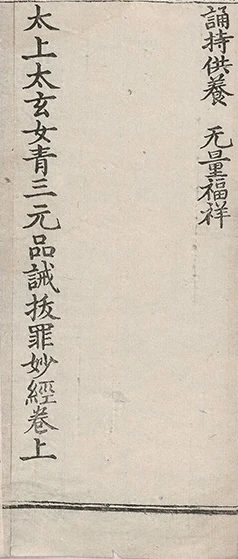 誦持供養 无量福祥
太上太玄女青三元品誡拔罪妙經卷上